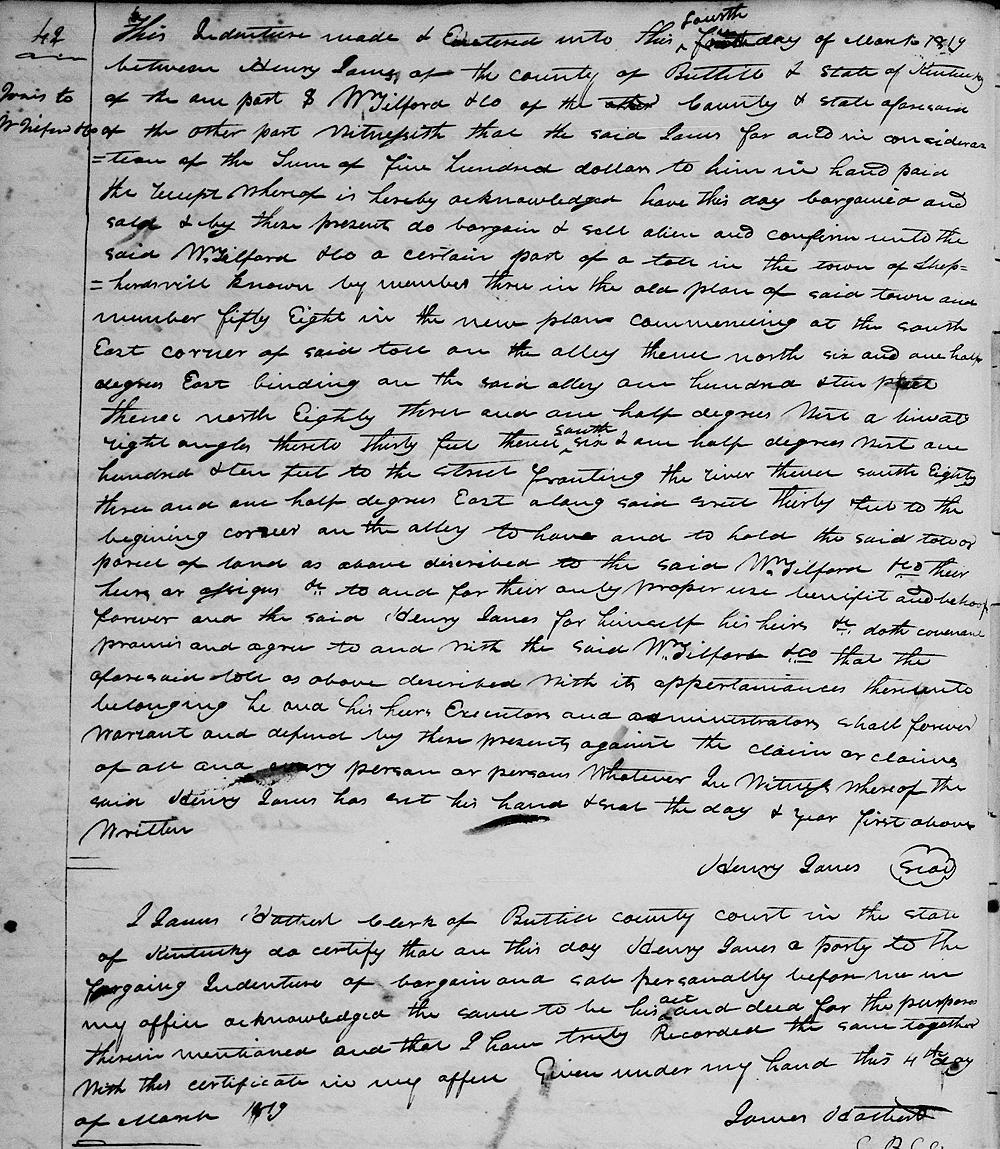 42
This Indenture made & Entered into this fourth day of March 1819
between Henry Janes of the county of Bullitt & state of Kentucky
Janes to
of the one part & Wm Tilford & co of the other County & state aforesaid
Wm Tilford & co
of the other part Witnesseth that the said Janes for and in considera
=tion of the Sum of five hundred dollars to him in hand paid
the receipt whereof is hereby acknowledged have this day bargained and
sold & by these present do bargain & sell alien and confirm unto the
said Wm Tilford & co a certain part of a lott in the town of Shep=
=herdsvill known by number three in the old plan of said town and
number fifty Eight in the new plan commencing at the south
East corner of said lott on the alley thence north six and one half
degrees East binding on the said alley one hundred & ten feet
thence north Eighty three and one half degrees West a lineal
right angles thereto thirty feet thence south six & one half degrees West one
hundred & ten feet to the street fronting the river thence south Eighty
three and one half degrees East along said street thirty feet to the
begining corner on the alley to have and to hold the said lott or
parcel of land as above discribed to the said Wm Tilford & co their
heirs or assigns &c to and for their only proper use benifit and behoof
forever and the said Henry Janes for himself his heirs &c doth covenant
promis and agree to and with the said Wm Tilford & co that the
aforesaid lott as above described with its appertainances thereunto
belonging he and his heirs Executors and administrators shall forever
Warrant and defend by these presents against the claim or claims
of all and every person or persons Whatever In Witness whereof the
said Henry Janes has set his hand & seal the day & year first above
Written
Henry Janes Seal
I James Clerk of Bullitt county court in the state
of Kentucky do certify that on this day Henry Janes a party to the
forgoing Indenture of bargain and sale personally before me in
my office acknowledged the same to be his act and deed for the purposes
therein mentioned and that I have truly Recorded the same together
With this certificate in my office Given under my hand this 4th day
of March 1819
James
C B C C